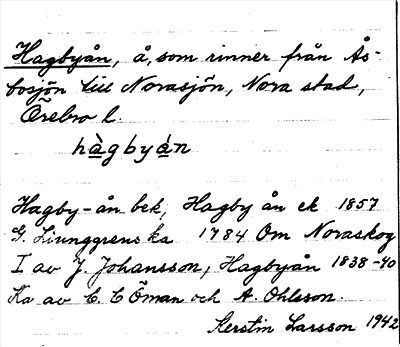 Hagbyån, å, som rinner från Ås-
bosjön till Norasjön, Nora stad,
Örebro l.
hàgbyán
Hagby-ån bek, Hagby ån ek 1857
G. Liunggrens ka 1784 Om Noraskog
I av J. Johansson, Hagbyån 1838-40
Ka av C. C Öman och A. Ohlsson.
Kerstin Larsson 1942